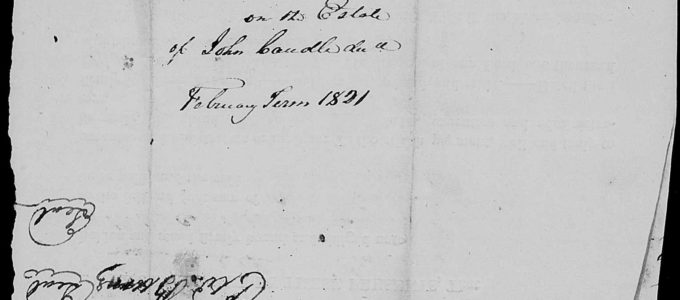 on the Estate
of John Caudle decd
February Term 1821
Seal
Seal